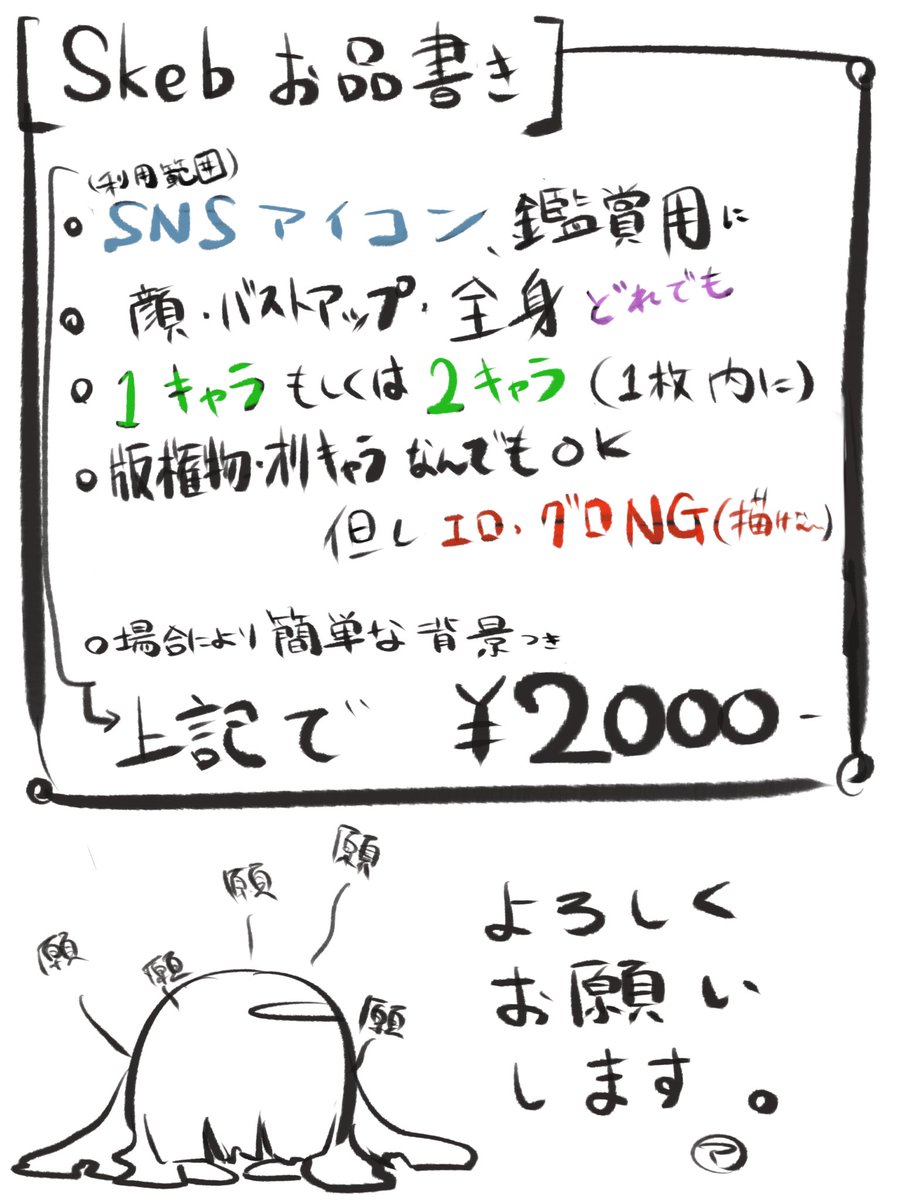 [Skeb お品書き]
(利用範囲)
・SNSアイコン、鑑賞用に
・顔・バストアップ・全身 どれでも
・1キャラ もしくは 2キャラ (1枚内に)
・版権物・オリキャラ なんでもOK
但し エロ・グロNG(描けない)
・場合により簡単な背景つき
上記で ¥2000-
願
願
願
願
願
よろしく
お願い
します。
ア